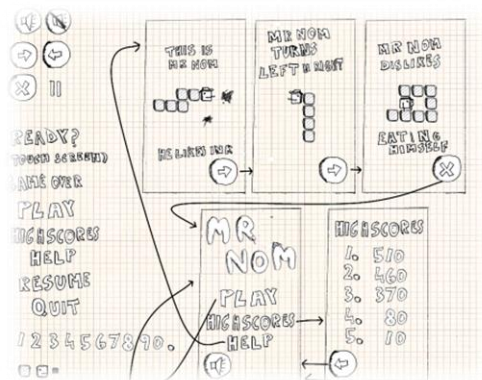 READY?
TOUCH SCREEN)
GAME OVER
PLAY
HIGHSCORES
HELP
RESUME
QUIT
1234567890.
THIS IS
MR NOM
HE LIKES INK
MR NOM
TURNS
LEFT & RIGHT
MR NOM
DISLIKES
EATING
HIMSELF
MR
NOM
PLAY
HIGHSCORES
HELP
HIGHSCORES
1. 510
2. 460
3. 370
4. 80
5. 10